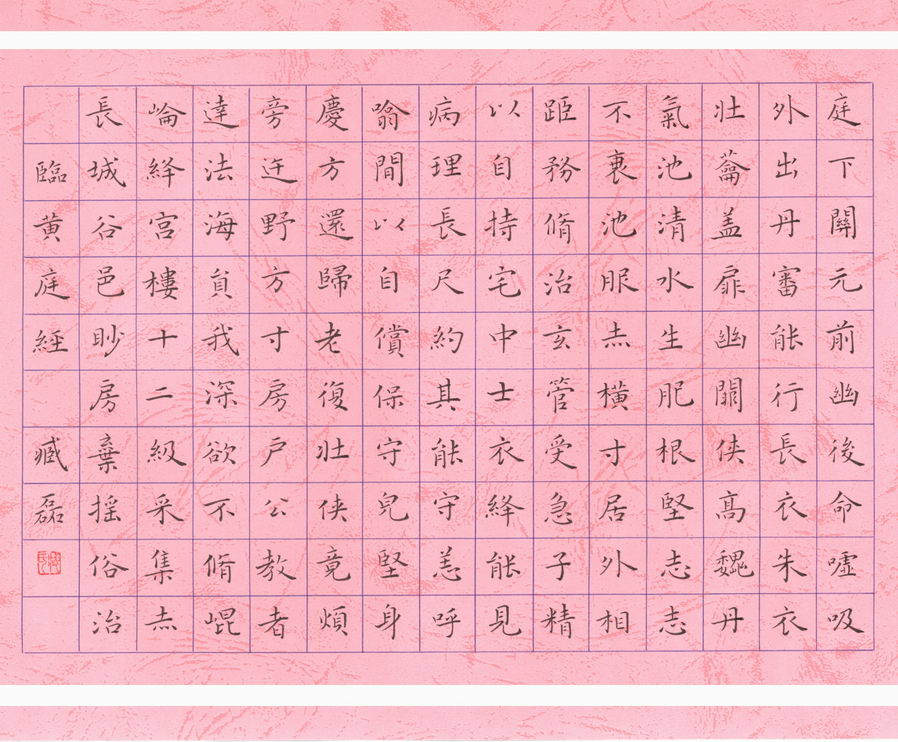 庭下關元前幽後命噓吸
外出丹審能行長衣朱衣
壮蘥盖扉幽關侠高魏丹
氣池清水生肥根堅志志
不衷池服赤橫寸居外相
距務脩治玄管受急子精
以自持宅中士衣絳能見
病理長尺約其能守恙呼
噏間以自償保守皃堅身
慶方還歸老復壮侠竟煩
旁迕野方寸房户公教者
達法海負我深欲不脩崐
崘絳宮樓十二級采集赤
長城谷邑眇房棄摇俗治
臨黄庭經 臧磊